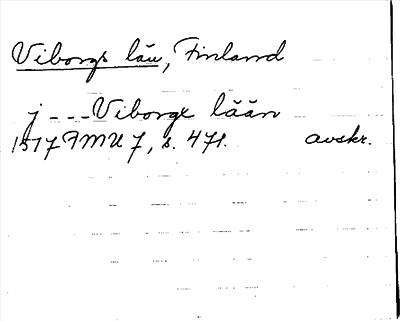 Viborgs län, Finland
j - - - Viborgx lään
1517 FMU 7, s. 471. avskr.